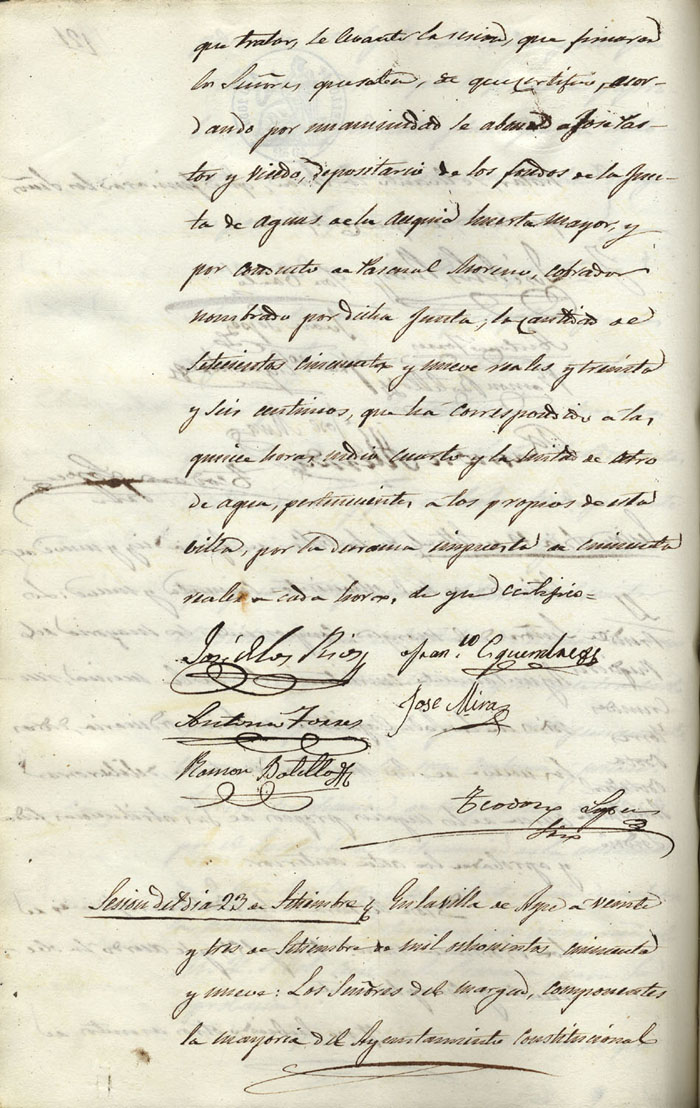 que tratar, se levantó la sesion, que firmaran
los Señores que saben, de que certifico, acor-
dando por unanimidad se abone a Jose Pas-
tor y Vicedo, depositario de los fondos de la Jun-
ta de aguas de la Acequia huerta mayor, y
por conducto de Pascual Moreno, cobrador
nombrado por dicha Junta, la cantidad de
setecientos cincuenta y nueve reales y treinta
y seis centimos, que há correspondido a las
quince horas, medio cuarto y la mitad de otro
de agua, pertenecientes a los propios de esta
villa, por la derrama impuesta de cincuenta
reales a cada hora, de que certifico=
José de los Rios
Fran.co Esquerdo
Antonio Torres
Jose Mira
Ramon Botella
Teodoro
Srio
Sesion del dia 23 de Setiembre
En la villa de Aspe a veinte
y tres de Setiembre de mil ochocientos cincuenta
y nueve: Los Señores del margen, componentes
la mayoria del Ayuntamiento constitucional